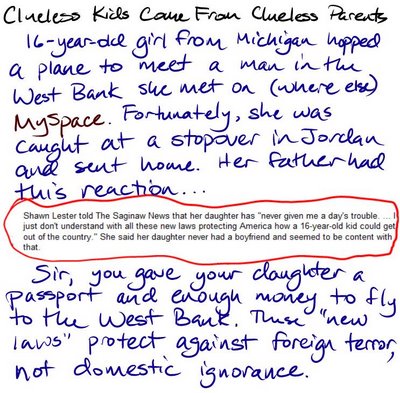 Clueless Kids Come From Clueless Parents
16-year-old girl from Michigan hopped
a plane to meet a man in the
West Bank she met on (where else)
MySpace. Fortunately, she was
caught at a stopover in Jordan
and sent home. Her father had
this reaction...
Shawn Lester told The Saginaw News that her daughter has "never given me a day's trouble. ... I
just don't understand with all these new laws protecting America how a 16-year-old kid could get
out of the country." She said her daughter never had a boyfriend and seemed to be content with
that.
Sir, you gave your daughter a
passport and enough money to fly
to the West Bank. These "new
laws" protect against foreign terror,
not domestic ignorance.